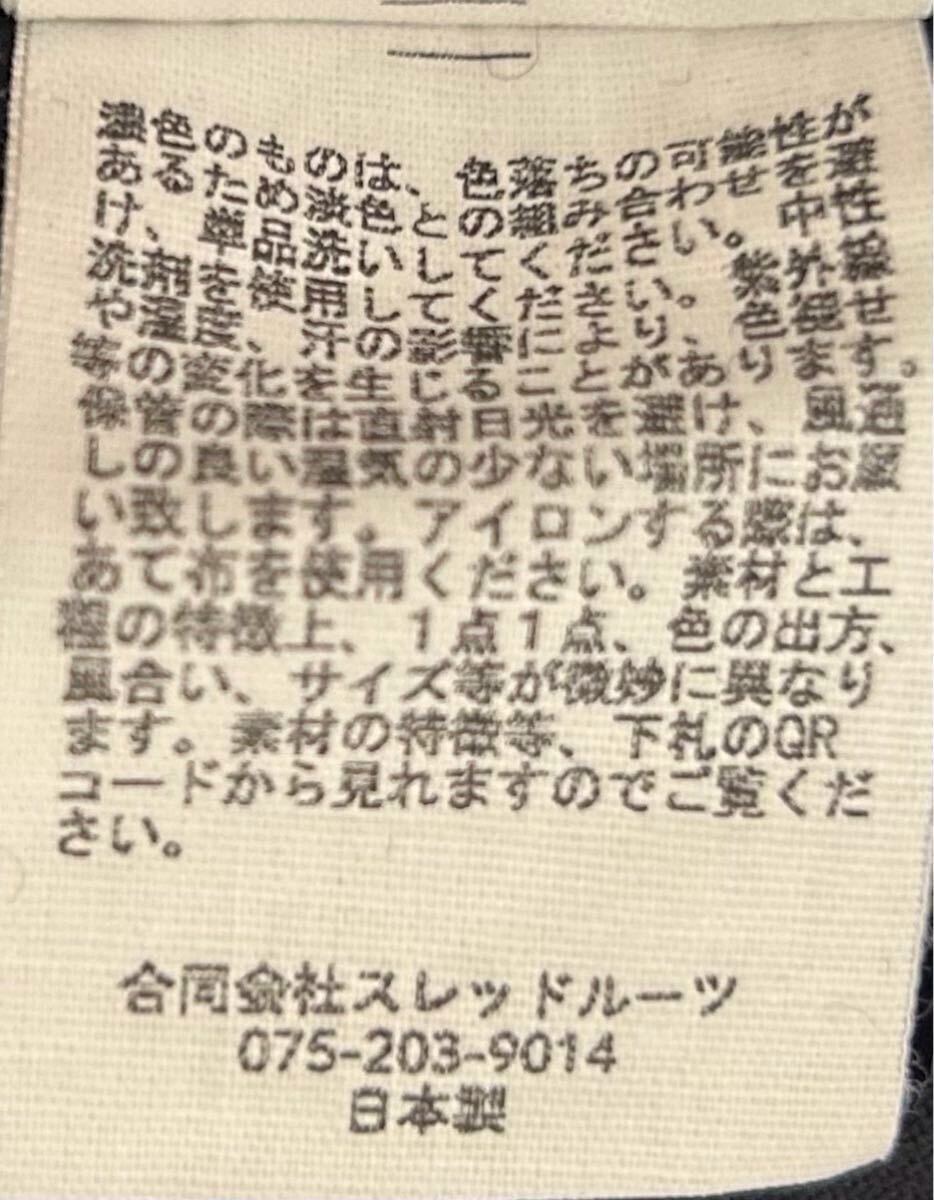 濃色のものは、色落ちの可能性が
あるため淡色との組み合わせを避
け、単品洗いしてください。中性
洗剤を使用してください。紫外線
や湿度、汗の影響により、色褪せ
等の変化を生じることがあります。
保管の際は直射日光を避け、風通
しの良い湿気の少ない場所にお願
い致します。アイロンする際は、
あて布を使用ください。素材と工
程の特徴上、1点1点、色の出方、
風合い、サイズ等が微妙に異なり
ます。素材の特徴等、下札のQR
コードから見れますのでご覧くだ
さい。
合同会社スレッドルーツ
075-203-9014
日本製